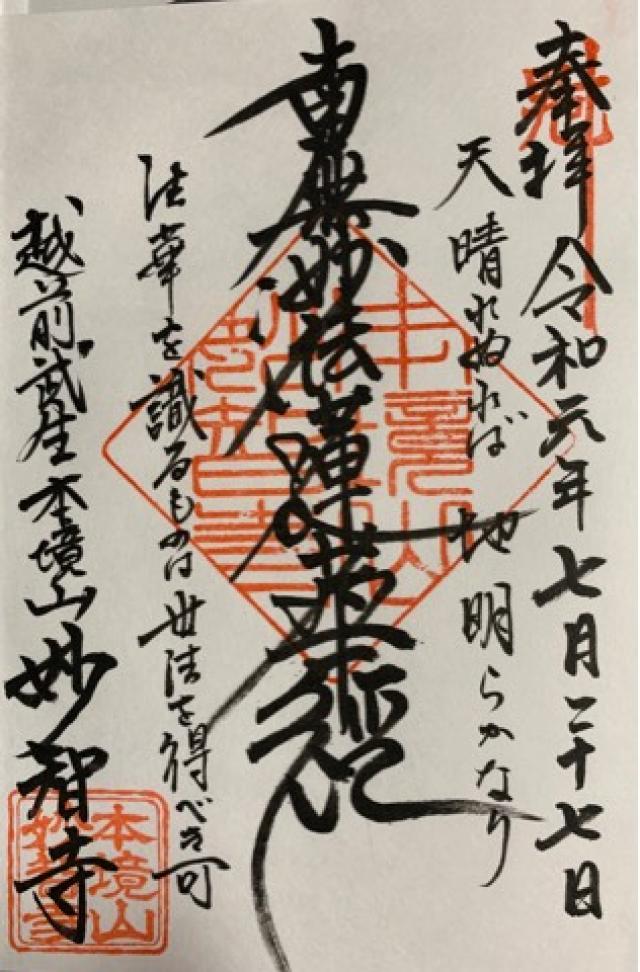 奉拝 令和元年七月二十七日
天晴れぬれば 地明らかなり
南無妙法蓮華経
法華を識るものは世法を得べき可
越前武生 本境山 妙智寺
本境山
妙智寺